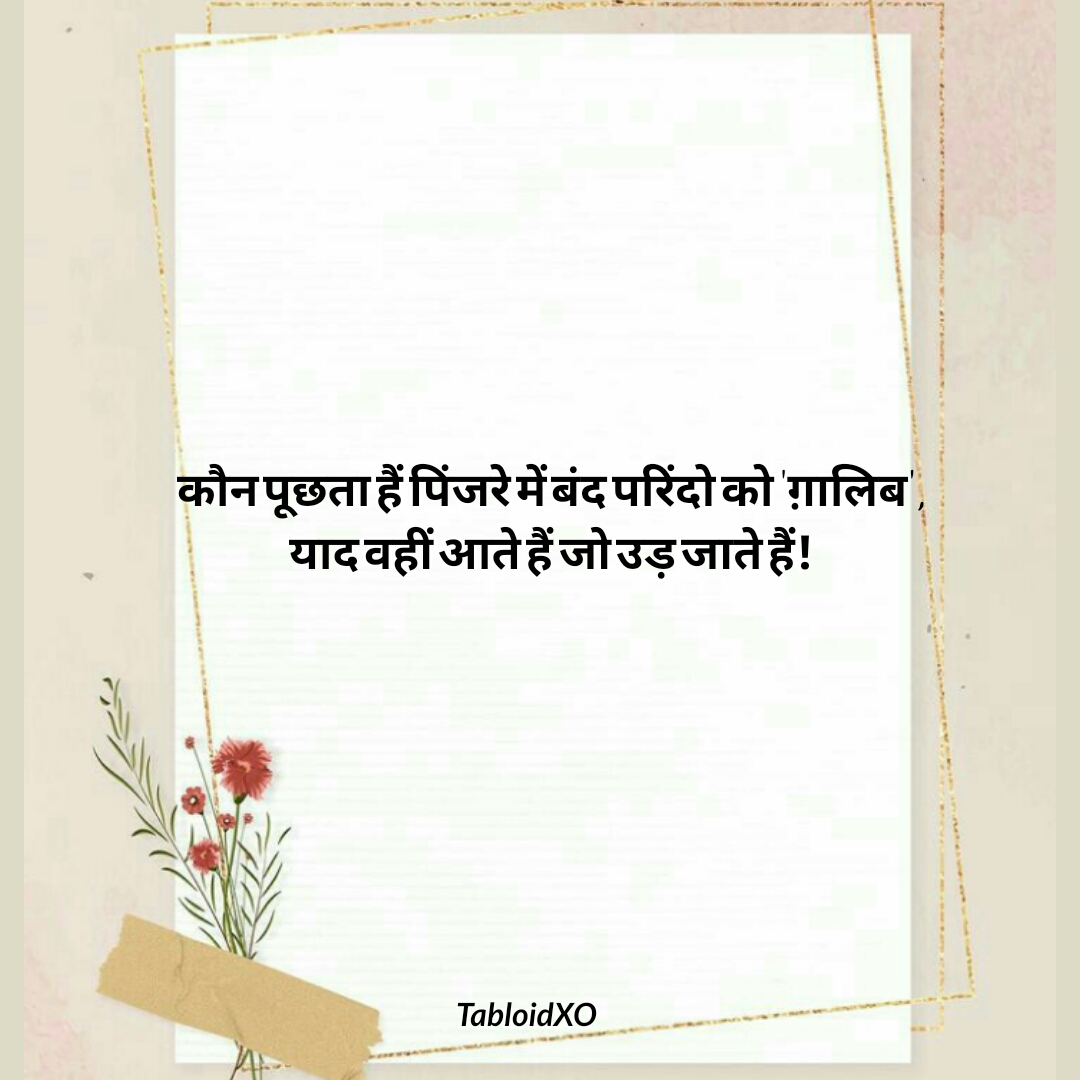 कौन पूछता हैं पिंजरे में बंद परिंदो को 'ग़ालिब',
याद वहीं आते हैं जो उड़ जाते हैं!
TabloidXO